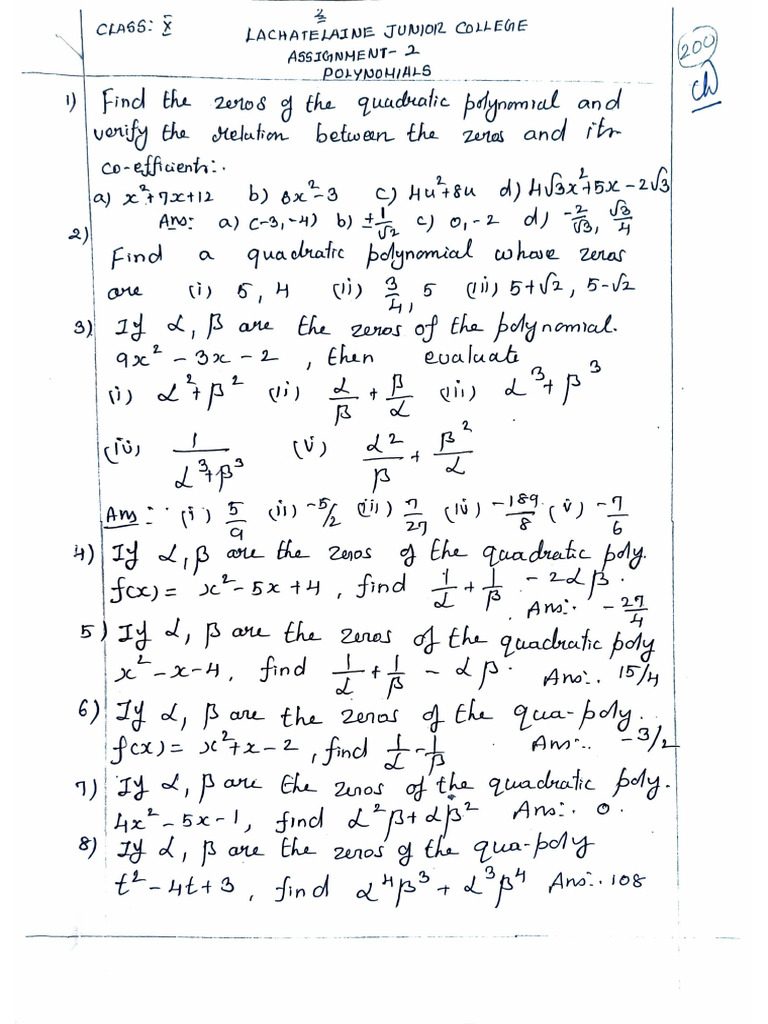 CLASS: X
LACHATELAINE JUNIOR COLLEGE
ASSIGNMENT- 2
POLYNOMIALS
200
1) Find the zeros of the quadratic polynomial and
verify the relation between the zeros and its
co-efficients:.
a) x²+7x+12 b) 8x²-3 c) 4u²+8u d) 4√3x²+5x-2√3
Ans: a) (-3,-4) b) ±1/√2 c) 0,-2 d) -2/√3, √3/4
2)
Find a quadratic polynomial whose zeros
are (i) 5, 4 (ii) 3/4, 5 (iii) 5+√2, 5-√2
3) If α, β are the zeros of the polynomial.
9x² - 3x - 2, then evaluate
(i) α²+β² (ii) α/β + β/α (iii) α³+β³
(iv) 1/α³+β³ (v) α²/β + β²/α
Ans:. (i) 5/9 (ii) -5/2 (iii) 7/27 (iv) -189/8 (v) -7/6
4) If α, β are the zeros of the quadratic poly.
f(x) = x²-5x+4, find 1/α + 1/β - 2αβ.
Ans:. -27/4
5) If α, β are the zeros of the quadratic poly
x²-x-4, find 1/α + 1/β - αβ. Ans:. 15/4
6) If α, β are the zeros of the qua-poly.
f(x) = x²+x-2, find 1/α - 1/β Ans:. -3/2
7) If α, β are the zeros of the quadratic poly.
4x²-5x-1, find α²β+αβ² Ans:. 0.
8) If α, β are the zeros of the qua-poly
t²-4t+3, find α⁴β³ + α³β⁴ Ans:. 108